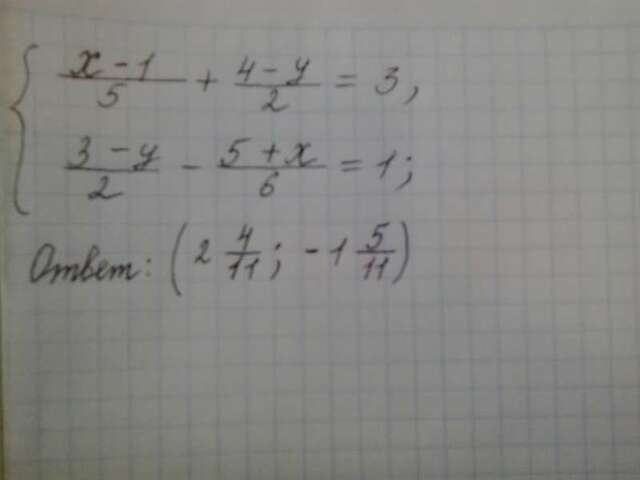 x - 1 / 5 + 4 - y / 2 = 3,
3 - y / 2 - 5 + x / 6 = 1;
Ответ: (2 4/11; -1 5/11)